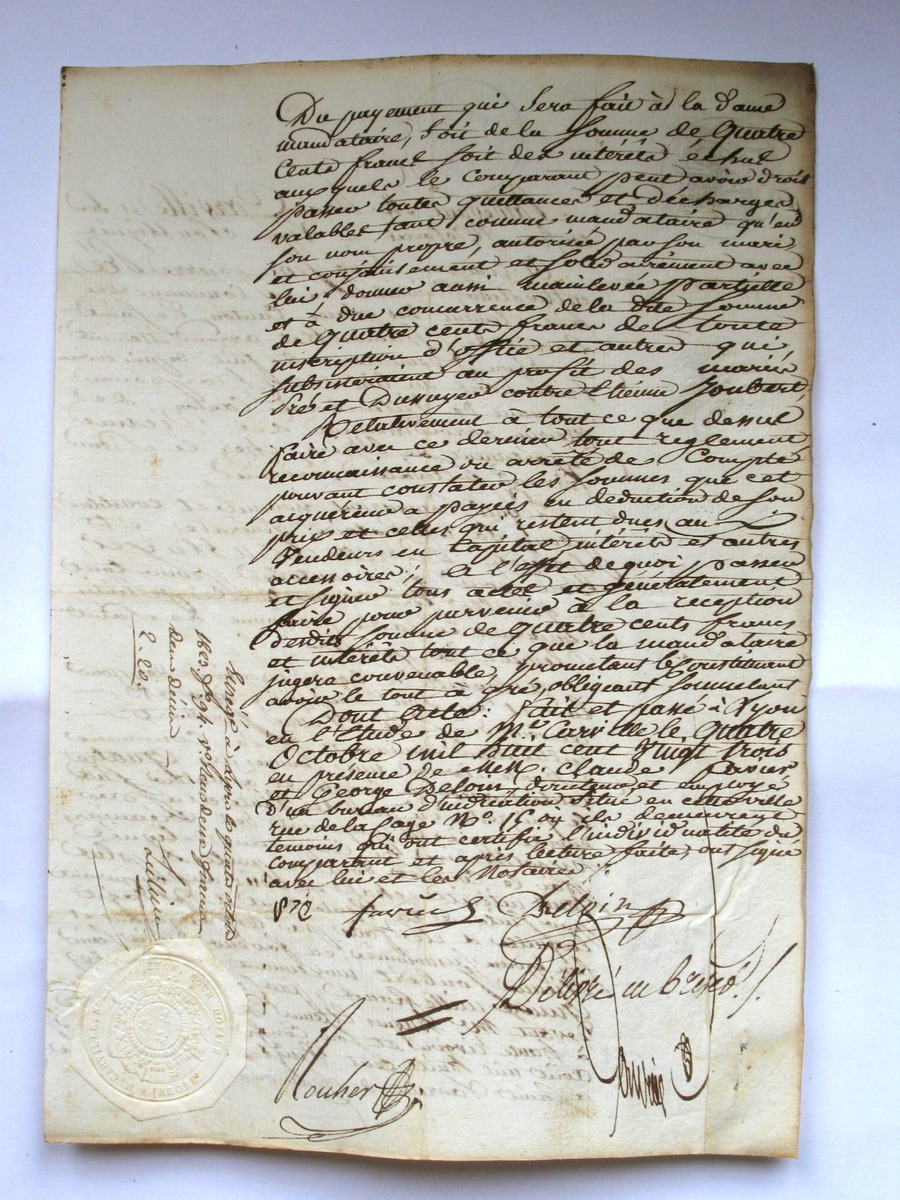 Du payement qui sera fait à la dame
mandataire, soit de la somme de Quatre
Cents francs soit des intérêts échus
auxquels le Comparant peut avoir droit
passer toutes quittances et décharges
valables tant comme mandataire qu'en
son nom propre, autorisée par son mari
et conjointement et solidairement avec
lui: donner aussi mainlevée partielle
et à due concurrence de la dite somme
de Quatre cents francs de toute
inscription d'office et autres qui
subsisteraient au profit des mariés
Pré et Dussuyer contre Etienne Joubert,
Relativement à tout ce que dessus
faire avec ce dernier tout règlement
reconnaissance ou arrêté de Compte
pouvant constater les sommes que cet
acquéreur a payées en déduction de son
prix et celles qui restent dues aux
Vendeurs en Capital, intérêts et autres
accessoires; à l'effet de quoi passer
et signer tous actes et généralement
faire pour parvenir à la réception
desdits somme de Quatre cents francs
et intérêts tout ce que la mandataire
jugera convenable, promettant le constituant
avoir le tout à gré, obligeant soumettant
Dont Acte: fait et passé à Lyon
en l'Etude de Me Carville le Quatre
Octobre mil huit cent Vingt trois
en présence de MM. Claude Favier
et George Delpin, directeur et employé
d'un bureau d'indication situé en cette ville
rue de la Cage No. 15 où ils demeurent
témoins qui ont certifié l'individualité du
comparant et après lecture faite, ont signé
avec lui et les Notaires /.
favier Delpin
Délivré en brevet /.
Rouher
Enregé à Lyon le quatre octobre
1823. fo 94. vo
2. 20.